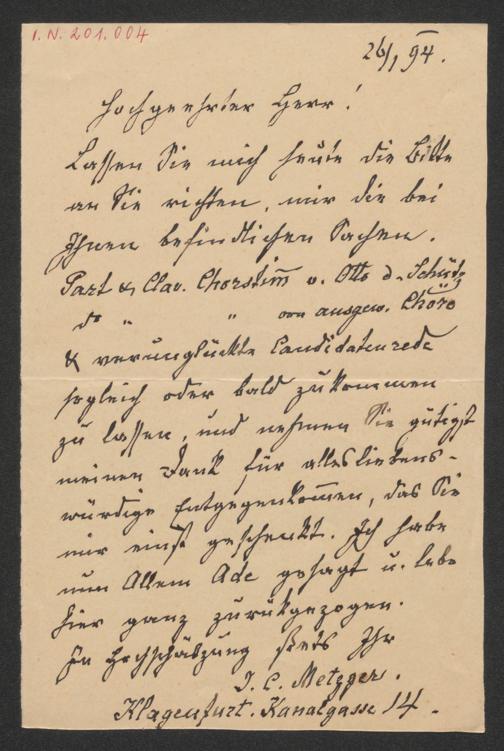 I. N. 201.004
26/1 94.
Hochgeehrter Herr!
Lassen Sie mich heute die Bitte
an Sie richten, mir die bei
Ihnen befindlichen Sachen.
Part & Clav. Chorstim̄ v. Otto d. Schütz
do " " von ausgew. Chöre
& verunglückte Candidatenrede
sogleich oder bald zukommen
zu lassen, und nehmen Sie gütigst
meinen Dank für alles liebens-
würdige Entgegenkom̄en, das Sie
mir einst geschenkt. Ich habe
nun Allem Ade gesagt u. lebe
hier ganz zurükgezogen.
In Hochschätzung stets Ihr
J. C. Metzger.
Klagenfurt. Kanalgasse 14.